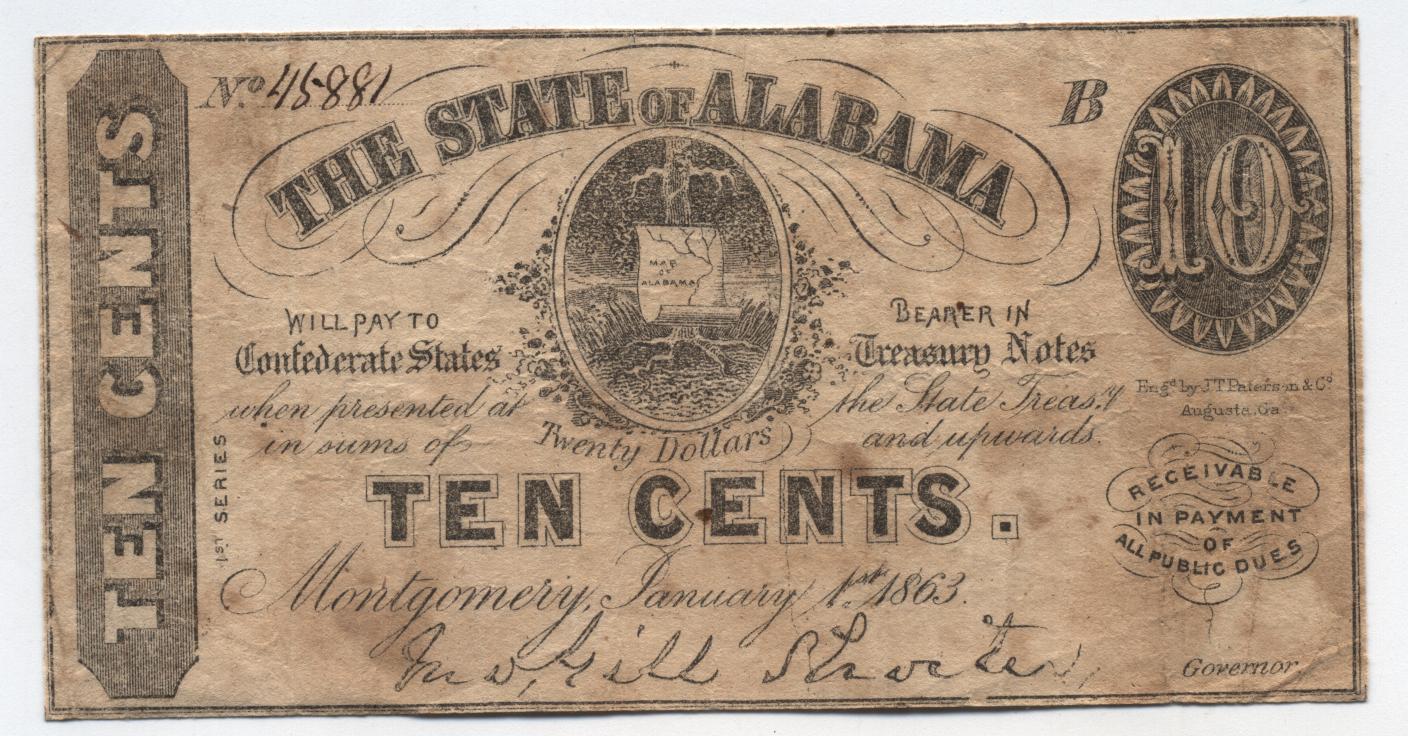 TEN CENTS
No. 45881
THE STATE OF ALABAMA
B
10
MAP
OF
ALABAMA
WILL PAY TO BEARER IN
Confederate States Treasury Notes
when presented at the State Treas.y
in sums of Twenty Dollars and upwards.
Engd by J.T. Paterson & Co
Augusta, Ga
1ST SERIES
TEN CENTS.
RECEIVABLE
IN PAYMENT
OF
ALL PUBLIC DUES
Montgomery, January 1st 1863.
Jno, Gill Shorter,
Governor